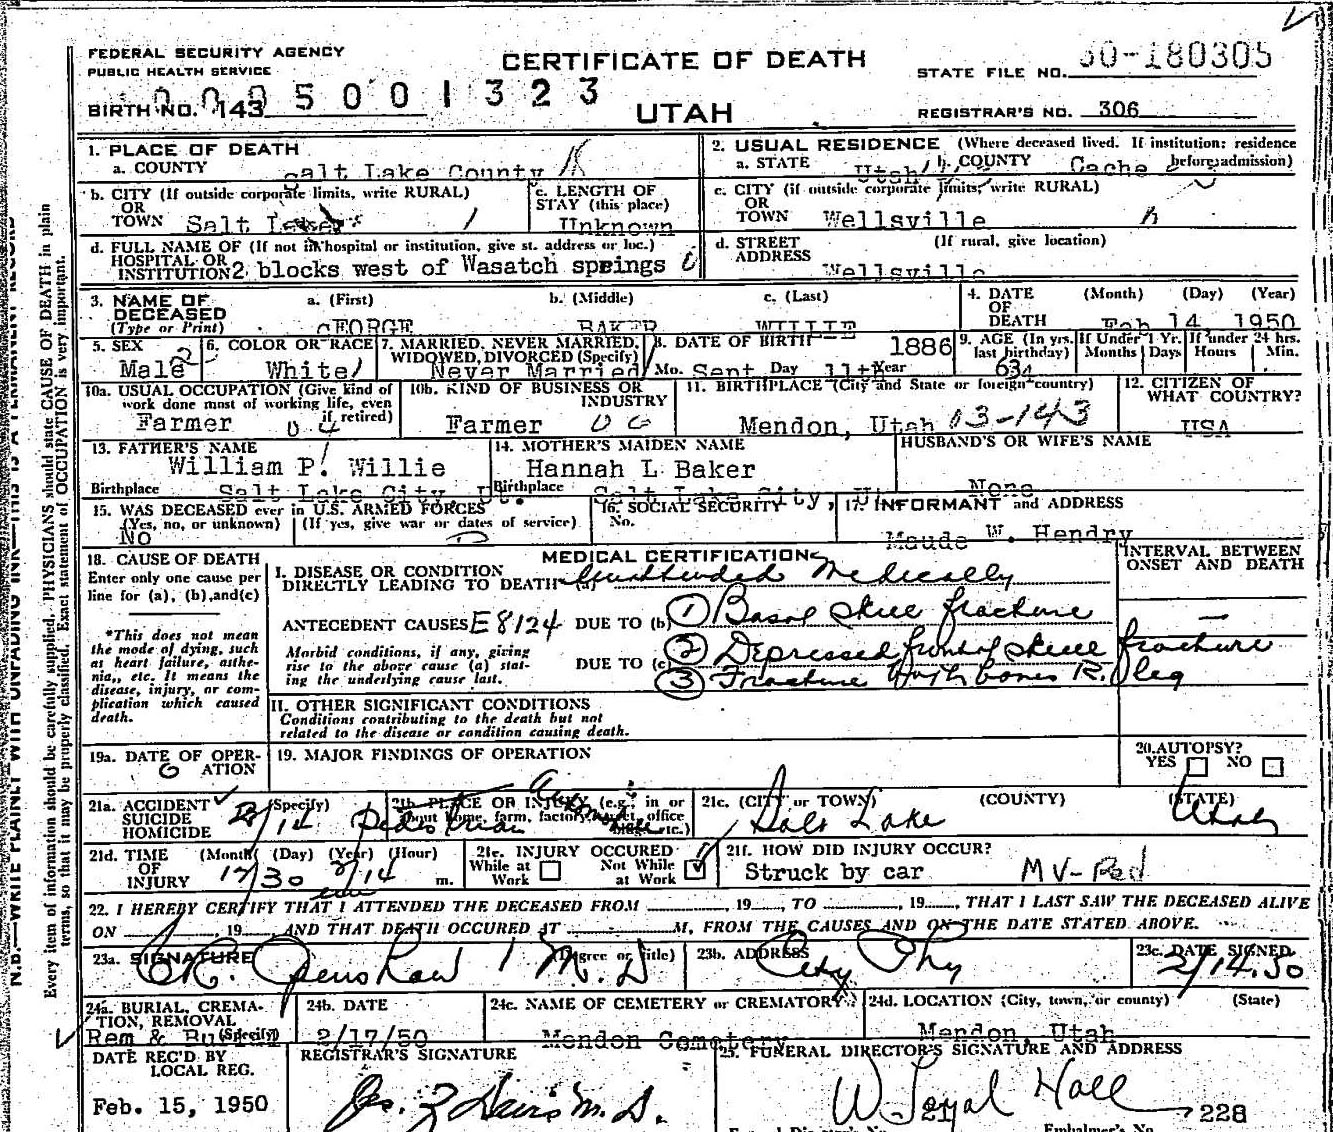 FEDERAL SECURITY AGENCY
PUBLIC HEALTH SERVICE
CERTIFICATE OF DEATH
STATE FILE NO. 50-180305
0005001323
BIRTH NO. 143
UTAH
REGISTRAR'S NO. 306
1. PLACE OF DEATH
a. COUNTY Salt Lake County
2. USUAL RESIDENCE (Where deceased lived. If institution: residence before admission)
a. STATE Utah b. COUNTY Cache
b. CITY (If outside corporate limits, write RURAL)
OR
TOWN Salt Lake
c. LENGTH OF
STAY (this place)
Unknown
c. CITY (if outside corporate limits, write RURAL)
OR
TOWN Wellsville
d. FULL NAME OF (If not in hospital or institution, give st. address or loc.)
HOSPITAL OR
INSTITUTION 2 blocks west of Wasatch springs
d. STREET
ADDRESS
(If rural, give location)
Wellsville
3. NAME OF
DECEASED
(Type or Print)
a. (First) b. (Middle) c. (Last)
GEORGE BAKER WILLIE
4. DATE
OF
DEATH
(Month) (Day) (Year)
Feb 14 1950
5. SEX
Male 2
6. COLOR OR RACE
White
7. MARRIED, NEVER MARRIED,
WIDOWED, DIVORCED (Specify)
Never Married
8. DATE OF BIRTH 1886
Mo. Sept Day 11th Year
9. AGE (In yrs. last birthday)
63
If Under 1 Yr.
Months Days
If under 24 hrs.
Hours Min.
10a. USUAL OCCUPATION (Give kind of
work done most of working life, even
if retired)
Farmer
10b. KIND OF BUSINESS OR
INDUSTRY
Farmer
11. BIRTHPLACE (City and State or foreign country)
Mendon, Utah 03-143
12. CITIZEN OF
WHAT COUNTRY?
USA
13. FATHER'S NAME
William P. Willie
Birthplace Salt Lake City, Ut.
14. MOTHER'S MAIDEN NAME
Hannah L Baker
Birthplace Salt Lake City, Ut
HUSBAND'S OR WIFE'S NAME
None
15. WAS DECEASED ever in U.S. ARMED FORCES
(Yes, no, or unknown) (If yes, give war or dates of service)
No
16. SOCIAL SECURITY
No.
17. INFORMANT and ADDRESS
Maude W. Hendry
18. CAUSE OF DEATH
Enter only one cause per
line for (a), (b), and (c)
*This does not mean
the mode of dying, such
as heart failure, asthe-
nia, etc. It means the
disease, injury, or com-
plication which caused
death.
MEDICAL CERTIFICATION
INTERVAL BETWEEN
ONSET AND DEATH
I. DISEASE OR CONDITION
DIRECTLY LEADING TO DEATH (a) Unattended Medically
ANTECEDENT CAUSES E8124 DUE TO (b) 1 Basal skull fracture
Morbid conditions, if any, giving
rise to the above cause (a) stat-
ing the underlying cause last.
DUE TO (c) 2 Depressed frontal skull fracture
3 Fracture both bones R. leg
II. OTHER SIGNIFICANT CONDITIONS
Conditions contributing to the death but not
related to the disease or condition causing death.
19a. DATE OF OPER-
ATION
19. MAJOR FINDINGS OF OPERATION
20. AUTOPSY?
YES NO
21a. ACCIDENT
SUICIDE
HOMICIDE
(Specify)
2/14
21b. PLACE OR INJURY (e.g., in or
about home, farm, factory, street, office
bldg. etc.)
Pedestrian Automobile
21c. (CITY or TOWN) (COUNTY) (STATE)
Salt Lake Utah
21d. TIME
OF
INJURY
(Month) (Day) (Year) (Hour)
m.
21e. INJURY OCCURED
While at
Work
Not While
at Work
21f. HOW DID INJURY OCCUR?
Struck by car MV-Ped
22. I HEREBY CERTIFY THAT I ATTENDED THE DECEASED FROM ........, 19...., TO ........, 19...., THAT I LAST SAW THE DECEASED ALIVE
ON ........, 19.... AND THAT DEATH OCCURED AT ........ M, FROM THE CAUSES AND ON THE DATE STATED ABOVE.
23a. SIGNATURE (Degree or title)
M.D
23b. ADDRESS
City Phy
23c. DATE SIGNED
2/14.50
24a. BURIAL, CREMA-
TION, REMOVAL
(Specify)
Rem & Burial
24b. DATE
2/17/50
24c. NAME OF CEMETERY or CREMATORY
Mendon Cemetery
24d. LOCATION (City, town, or county) (State)
Mendon, Utah
DATE REC'D BY
LOCAL REG.
Feb. 15, 1950
REGISTRAR'S SIGNATURE
M.D.
25. FUNERAL DIRECTOR'S SIGNATURE AND ADDRESS
W Loyal Hall
217 228
Embalmer's No
N.B.—WRITE PLAINLY WITH UNFADING INK—THIS IS A PERMANENT RECORD
Every item of information should be carefully supplied. PHYSICIANS should state CAUSE OF DEATH in plain
terms, so that it may be properly classified. Exact statement of OCCUPATION is very important.